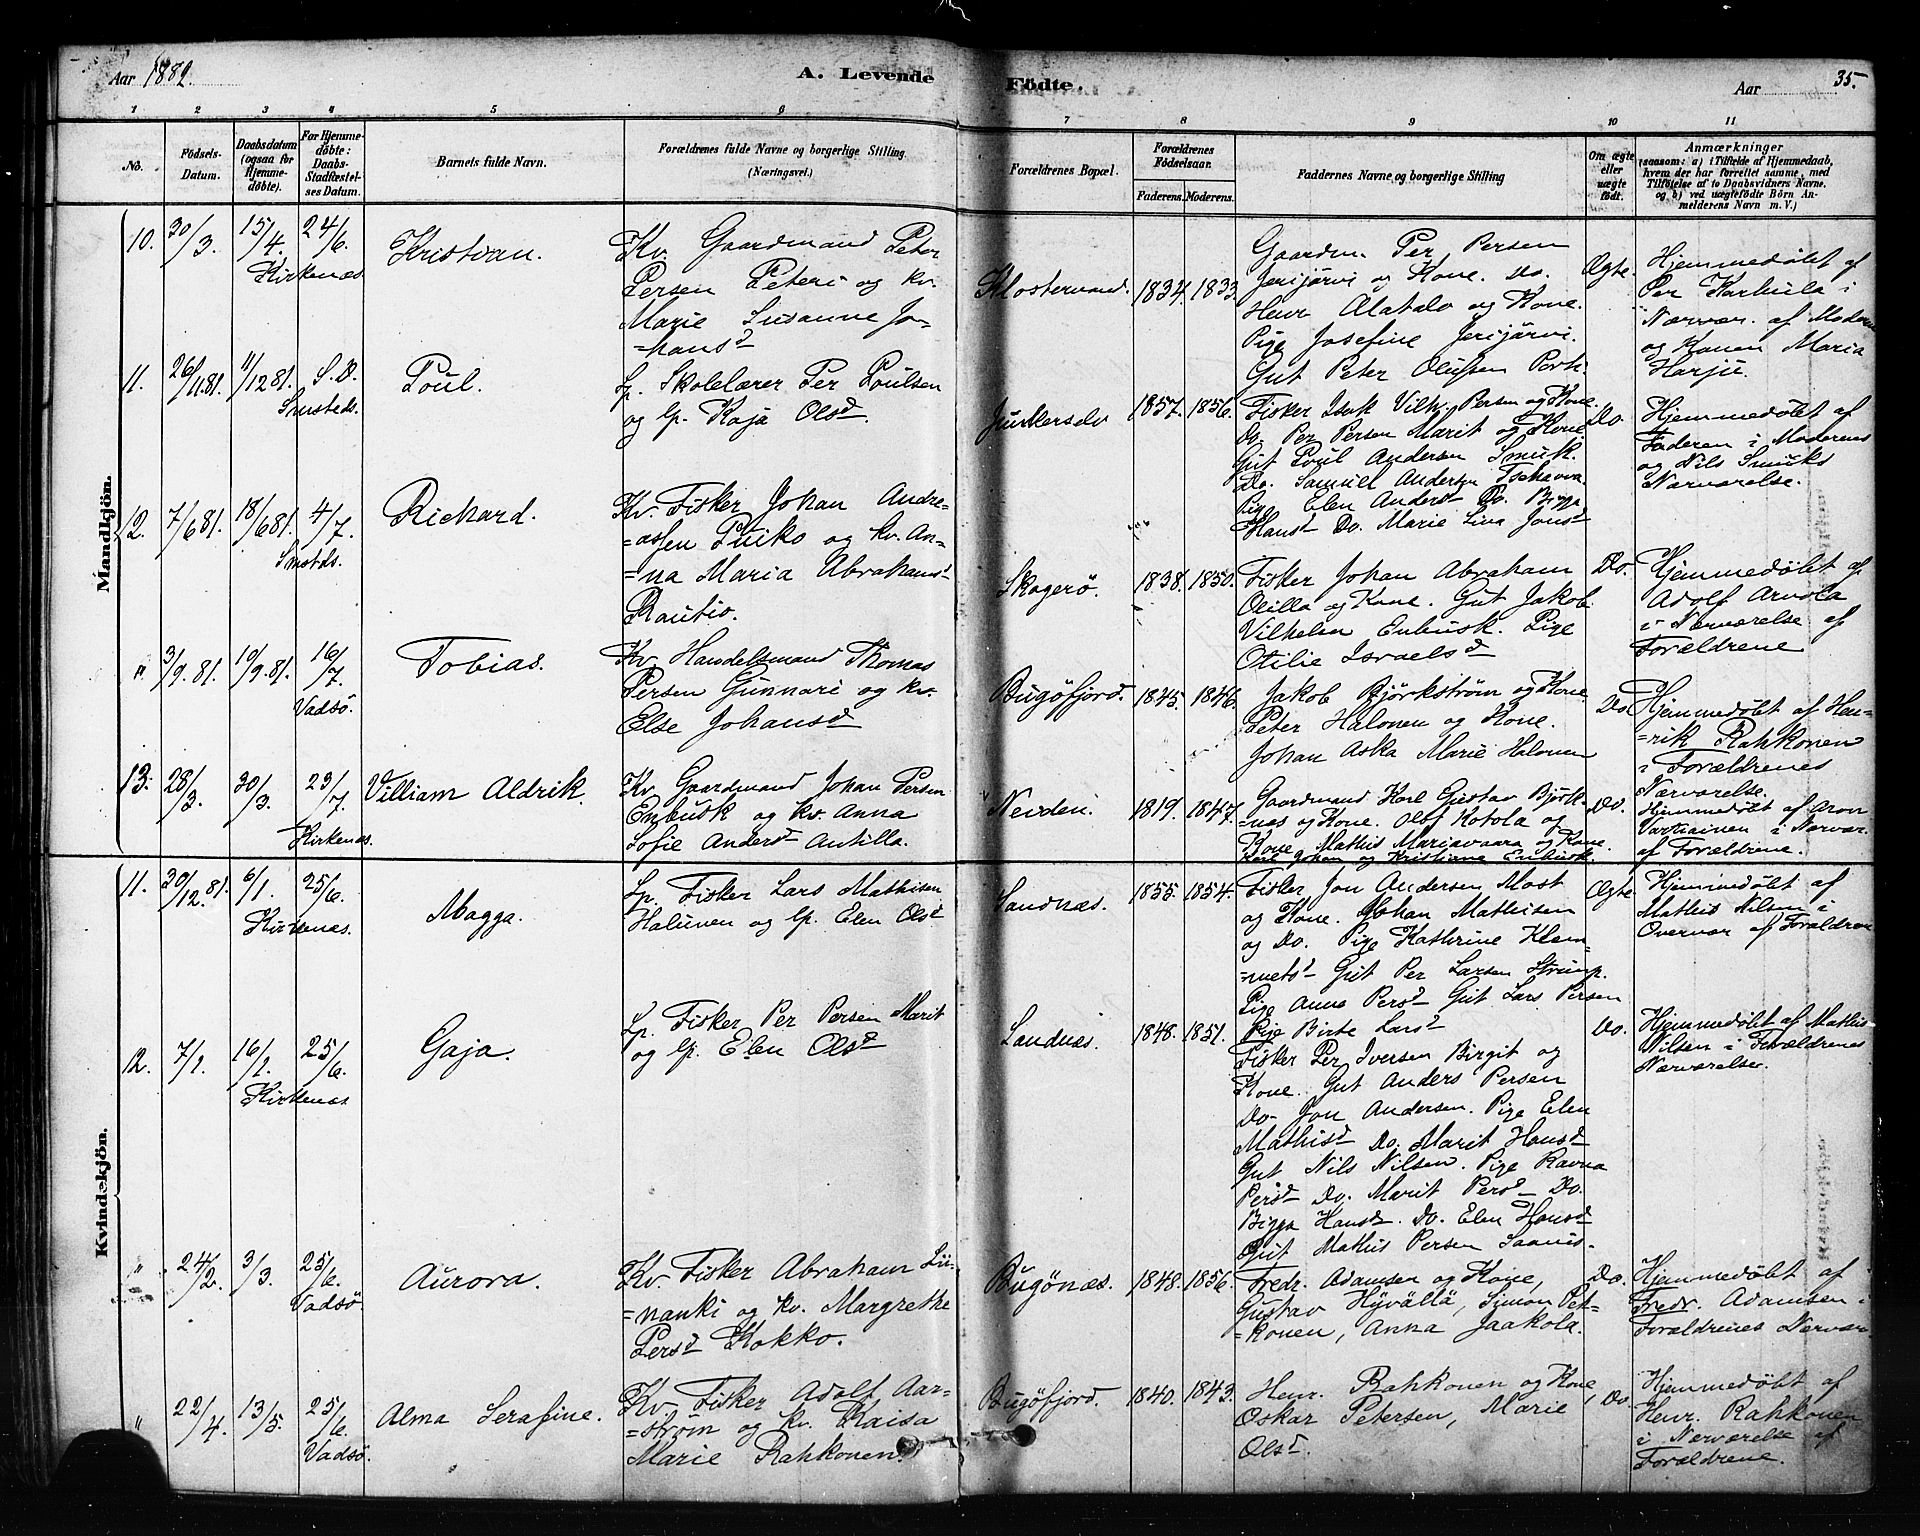 Aar 1882.
A. Levende
Födte.
Aar
35.
1 2 3 4 5 6 7 8 9 10 11
No.
Födsels-Datum.
Daabsdatum (ogsaa for Hjemmedöbte).
For Hjemmedöbte: Daabs-Stadfæstelses Datum.
Barnets fulde Navn.
Forældrenes fulde Navne og borgerlige Stilling
(Næringsvei.)
Forældrenes Bopæl.
Forældrenes Födselsaar.
Faderens. Moderens.
Faddernes Navne og borgerlige Stilling
Om ægte eller uægte født.
Anmærkninger
(saasom: a) i Tilfælde af Hjemmedaab, hvem der har forrettet samme, med Tilföielse af to Daabsvidners Navne, og b) ved uægtefödte Börn Anmelderens Navn m. V.)
Mandkjön.
10. 30/3. 15/4. 24/6.
Kirkenæs
Kristian.
Kv. Gaardmand Peter
Persen Peteri og kv.
Marie Susanne Jo-
=hansd
Klostervand. 1834. 1833.
Gaardm. Per Persen
Jerijärvi og Kone. Do.
Henr. Alatalo og Kone.
Pige Josefine Jerijärvi.
Gut Peter Olufsen Port.
Ægte.
Hjemmedøbt af
Per Karhula i
Nærvær. af Moderen
og Konen Maria
Harju.
11. 26/11 81. 11/12 81. S. D.
Smsteds.
Poul.
Lp. Skolelærer Per Poulsen
og lp. Kaja Olsd
Junkerselv 1857. 1856.
Fisker Isak Vilh. Persen og Kone.
Do. Per Persen Marit og Kone
Gut Poul Andersen Smuk.
Do. Samuel Andersen
Pige Elen Andersd Do. Bigga
Hansd Do. Marie Lina Jonsd
Do.
Hjemmedøbt af
Faderen i Moderens
og Nils Smuks
Nærværelse.
12. 7/6 81. 18/6 81. 4/7.
Smstds.
Richard.
Kv. Fisker Johan Andre-
=assen Puiko og kv. An-
=na Maria Abrahamsd
Rautio.
Skogerö. 1838. 1850.
Fisker Johan Abraham
Olilla og Kone. Gut Jakob
Vilhelm Enbusk. Pige
Otilie Israelsd
Do.
Hjemmedøbt af
Adolf Arvola
i Nærværelse af
Forældrene
" 3/9 81. 19/9 81. 16/7.
Vadsö.
Tobias.
Kv. Handelsmand Thomas
Persen Gunnari og kv.
Else Johansd
Bugöfjord. 1845. 1846.
Jakob Björkström og Kone
Peter Halonen og Kone.
Johan Aska Marie Halonen
Do.
Hjemmedøbt af Hen-
=rik Rahkonen
i Forældrenes
Nærværelse.
13. 28/3. 30/3. 23/7.
Kirkenæs.
Villiam Aldrik.
Kv. Gaardmand Johan Persen
Enbusk og kv. Anna
Sofie Andersd Antilla.
Neiden. 1819. 1847.
Gaardmand Karl Gustav Björk-
=næs og Kone. Olof Kotola og
Kone Mathis Mariavaara og Kone.
Karl Johan og Kristiane Enbusk.
Do.
Hjemmedøbt af Aron
Vartiainen i Nærvær.
af Forældrene.
Kvindekjön.
11. 30/12 81. 6/1. 25/6.
Kirkenæs.
Magga.
Lp. Fisker Lars Mathisen
Halunen og lp. Elen Olsd
Sandnæs. 1855. 1854.
Fisker Jon Andersen Most
og Kone. Johan Mathisen
og Do. Pige Kathrine Klem-
=metsd Gut Per Larsen Strump.
Pige Anne Persd Gut Lars Persen
Pige Birte Larsd
Ægte
Hjemmedøbt af
Mathis Nilsen i
Overvær af Forældrene
12. 7/2. 16/2. 25/6.
Kirkenæs
Gaja.
Lp. Fisker Per Persen Marit
og lp. Elen Olsd
Sandnæs. 1848. 1851.
Fisker Per Iversen Birgit og
Kone. Gut Anders Persen
Do. Jon Andersen. Pige Elen
Mathisd Do. Marit Hansd
Gut Nils Nilsen. Pige Ravna
Persd Do. Marit Persd Do.
Bigga Hansd. Do. Elen Hansd
Gut Mathis Persen Saanis.
Do.
Hjemmedøbt af Mathis
Nilsen i Forældrenes
Nærværelse.
" 24/2. 3/3. 25/6.
Vadsö.
Aurora.
Kv. Fisker Abraham Lii-
=nanki og kv. Margrethe
Persd Kokko.
Bugönæs. 1848. 1856.
Fredr. Adamsen og Kone,
Gustav Hyvällä, Simon Pek-
=konen, Anna Jaakola.
Do.
Hjemmedøbt af
Fredr. Adamsen i
Forældrenes Nærvær.
" 22/4. 13/5. 25/6.
Vadsö.
Alma Serafine.
Kv. Fisker Adolf Aar-
=ström og kv. Kaisa
Marie Rahkonen.
Bugöfjord. 1840. 1843.
Henr. Rahkonen og Kone,
Oskar Petersen, Marie
Olsd.
Do.
Hjemmedøbt af
Henr. Rahkonen
i Nærværelse af
Forældrene.